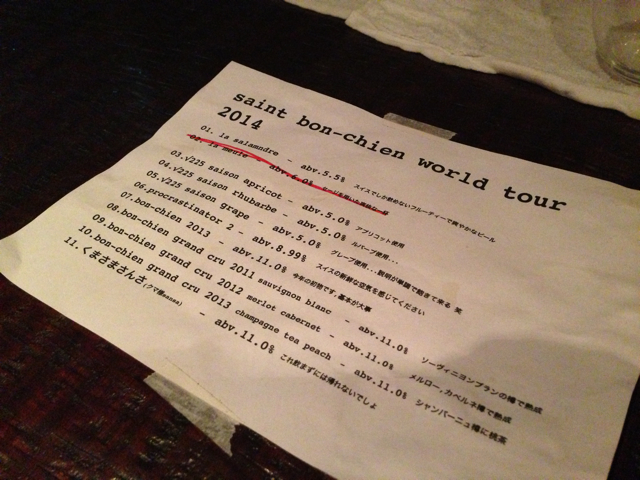 saint bon-chien world tour
2014
01. la salamndre - abv.5.5% スイスでしか飲めないフルーティーで爽やかなビール
02. la meule - abv.6.0%
03.√225 saison apricot - abv.5.0% アプリコット使用
04.√225 saison rhubarbe - abv.5.0% ルバーブ使用...
05.√225 saison grape - abv.5.0% グレープ使用...説明が単調で飽きて来る 笑
06.procrastinator 2 - abv.8.99% スイスの新鮮な空気を感じてください
07.bon-chien 2013 - abv.11.0% 今年の初物です,基本が大事
08.bon-chien grand cru 2011 sauvignon blanc - abv.11.0% ソーヴィニヨンブランの樽で熟成
09.bon-chien grand cru 2012 merlot cabernet - abv.11.0% メルロー,カベルネ樽で熟成
10.bon-chien grand cru 2013 champagne tea peach - abv.11.0% シャンパーニュ樽に桃茶
11.くまさまさんさ - abv.11.0% これ飲まずには帰れないでしょ